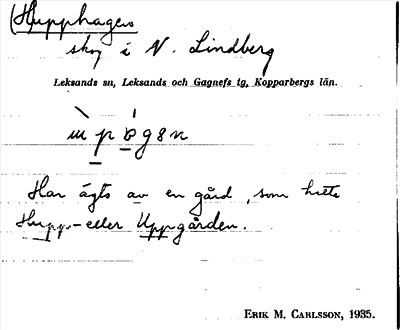 (Hupphagen
skog i N. Lindberg
Leksands sn, Leksands och Gagnefs tg, Kopparbergs län.
Har ägts av en gård, som hette
Hupp- eller Uppgården.
ERIK M. CARLSSON, 1935.